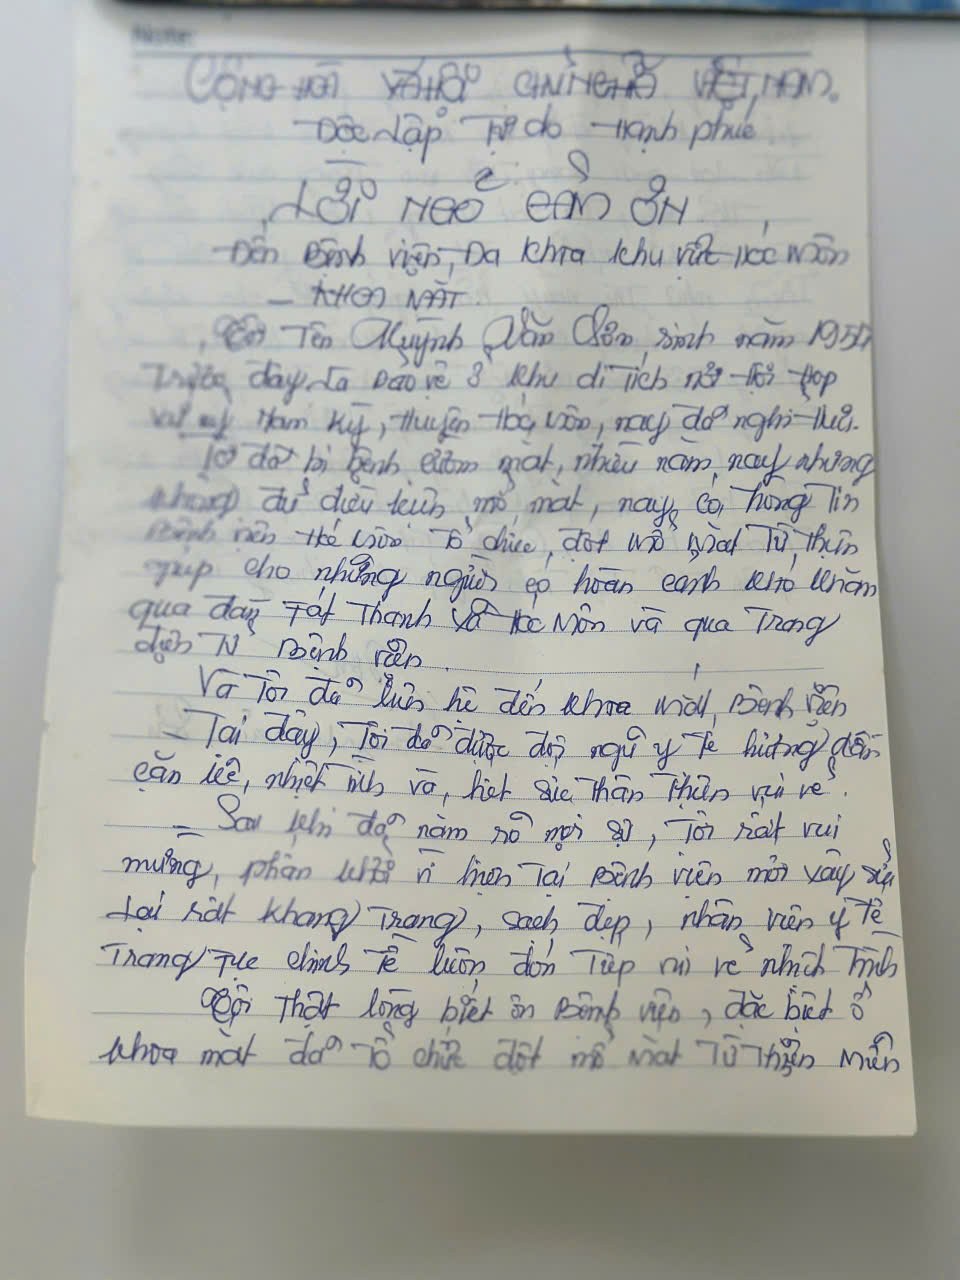 Note:
CỘNG HÒA XÃ HỘI CHỦ NGHĨA VIỆT NAM.
Độc Lập Tự do Hạnh phúc
LỜI NGỎ CẢM ƠN
Đến Bệnh viện Đa khoa khu vực Hóc Môn
- KHOA MẮT.
Tôi Tên Huỳnh Văn sinh năm
Trước đây Là Bảo vệ ở khu di Tích
Nam Kỳ, Huyện Hóc Môn, nay đã nghỉ
Tôi đã bị bệnh cườm mắt, nhiều năm nay nhưng
không đủ điều kiện mổ mắt, nay có Thông Tin
Bệnh viện Hóc Môn Tổ chức đợt mổ Mắt Từ Thiện
giúp cho những người có hoàn cảnh khó khăn
qua đài Phát Thanh Hóc Môn và qua Trang
điện Tử Bệnh viện.
Và Tôi đã liên hệ đến khoa Mắt Bệnh viện
- Tại đây, Tôi đã được đội ngũ y Tế hướng dẫn
cặn kẽ, nhiệt Tình và, hết sức Thân Thiện vui vẻ.
- Sau khi đã nắm rõ mọi sự, Tôi rất vui
mừng, phấn khởi vì hiện Tại Bệnh viện mới xây
Lại rất khang Trang, sạch đẹp, nhân viên y Tế
Trang Tục chỉnh Tề luôn đón Tiếp vui vẻ nhiệt Tình
Tôi Thật lòng biết ơn Bệnh viện, đặc biệt ở
khoa mắt đã Tổ chức đợt mổ Mắt Từ Thiện Miễn